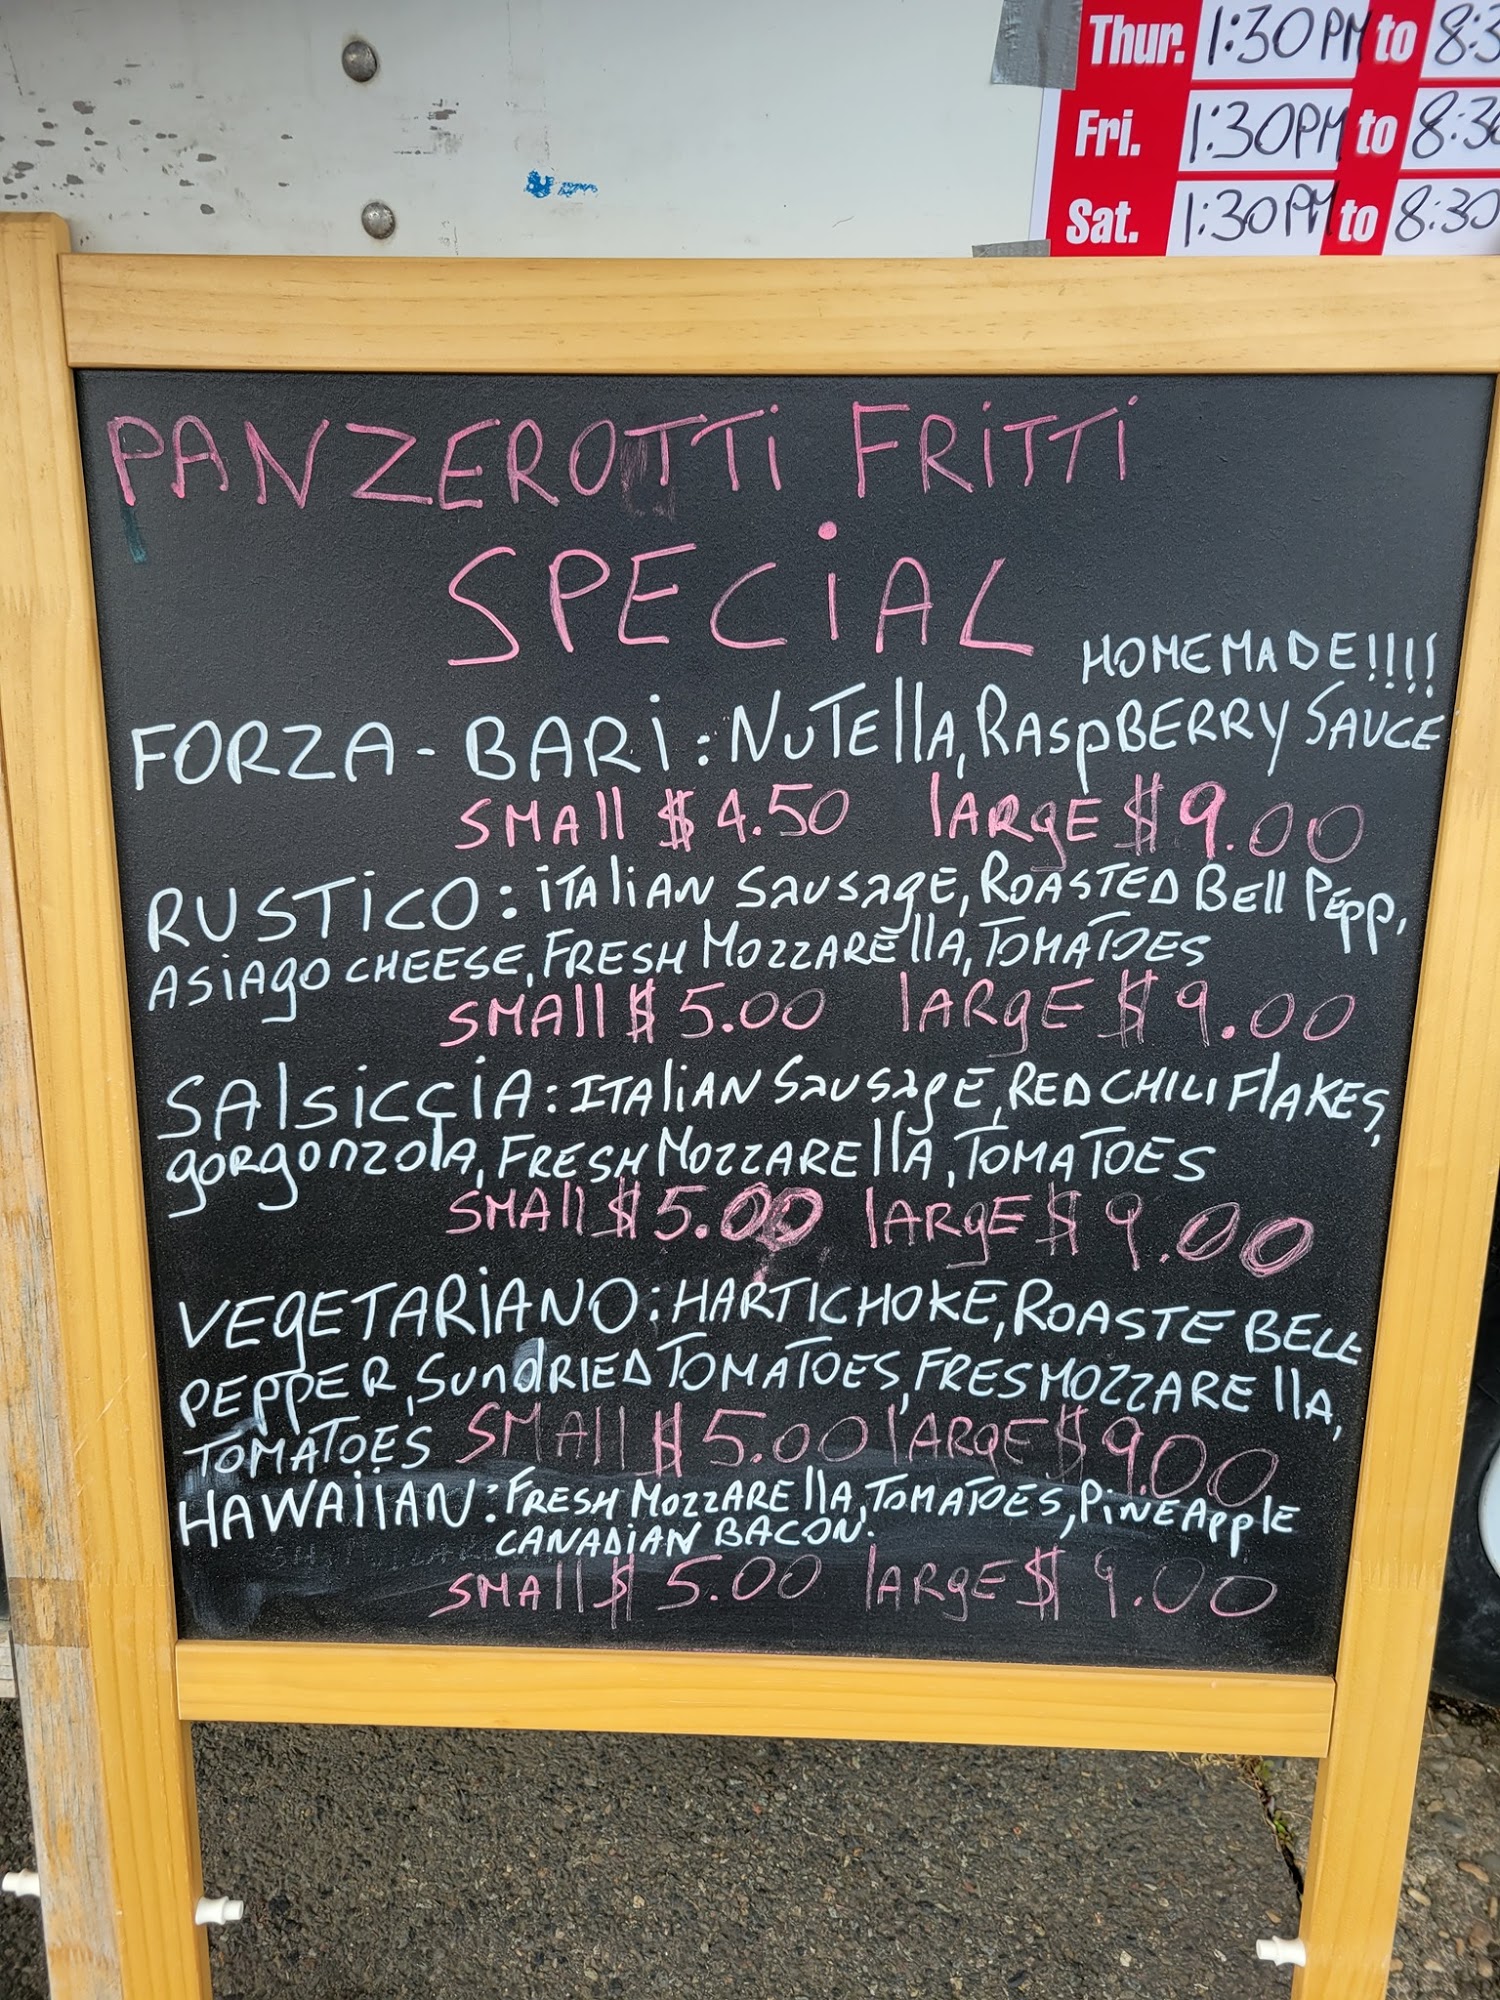 Thur. 1:30PM to 8:3
Fri. 1:30PM to 8:30
Sat. 1:30PM to 8:30
PANZEROTTi FRiTTi
SPECiAL
HOMEMADE!!!!
FORZA-BARi: NuTEllA, RAspBERRY SAUCE
SMAll $4.50 lARgE $9.00
RUSTiCO: iTAliAN SAUSAgE, ROASTED BEll PEpp,
ASiAgO CHEESE, FRESH MOZZAREllA, TOMATOES
SMAll $5.00 lARgE $9.00
SAlSiCCiA: ITAliAN SAUSAgE, RED CHILI FlAKES,
gORgONZOlA, FRESH MOZZAREllA, TOMATOES
SMAll $5.00 lARgE $9.00
VEgETARiANO: HARTICHOKE, ROASTE BELL
PEPPER, SunDRIED TOMATOES, FRES MOZZAREllA,
TOMATOES SMAll $5.00 lARgE $9.00
HAWAiiAN: FRESH MOZZAREllA, TOMATOES, PiNEApplE
CANADiAN BACON.
SMAll $5.00 lARgE $9.00